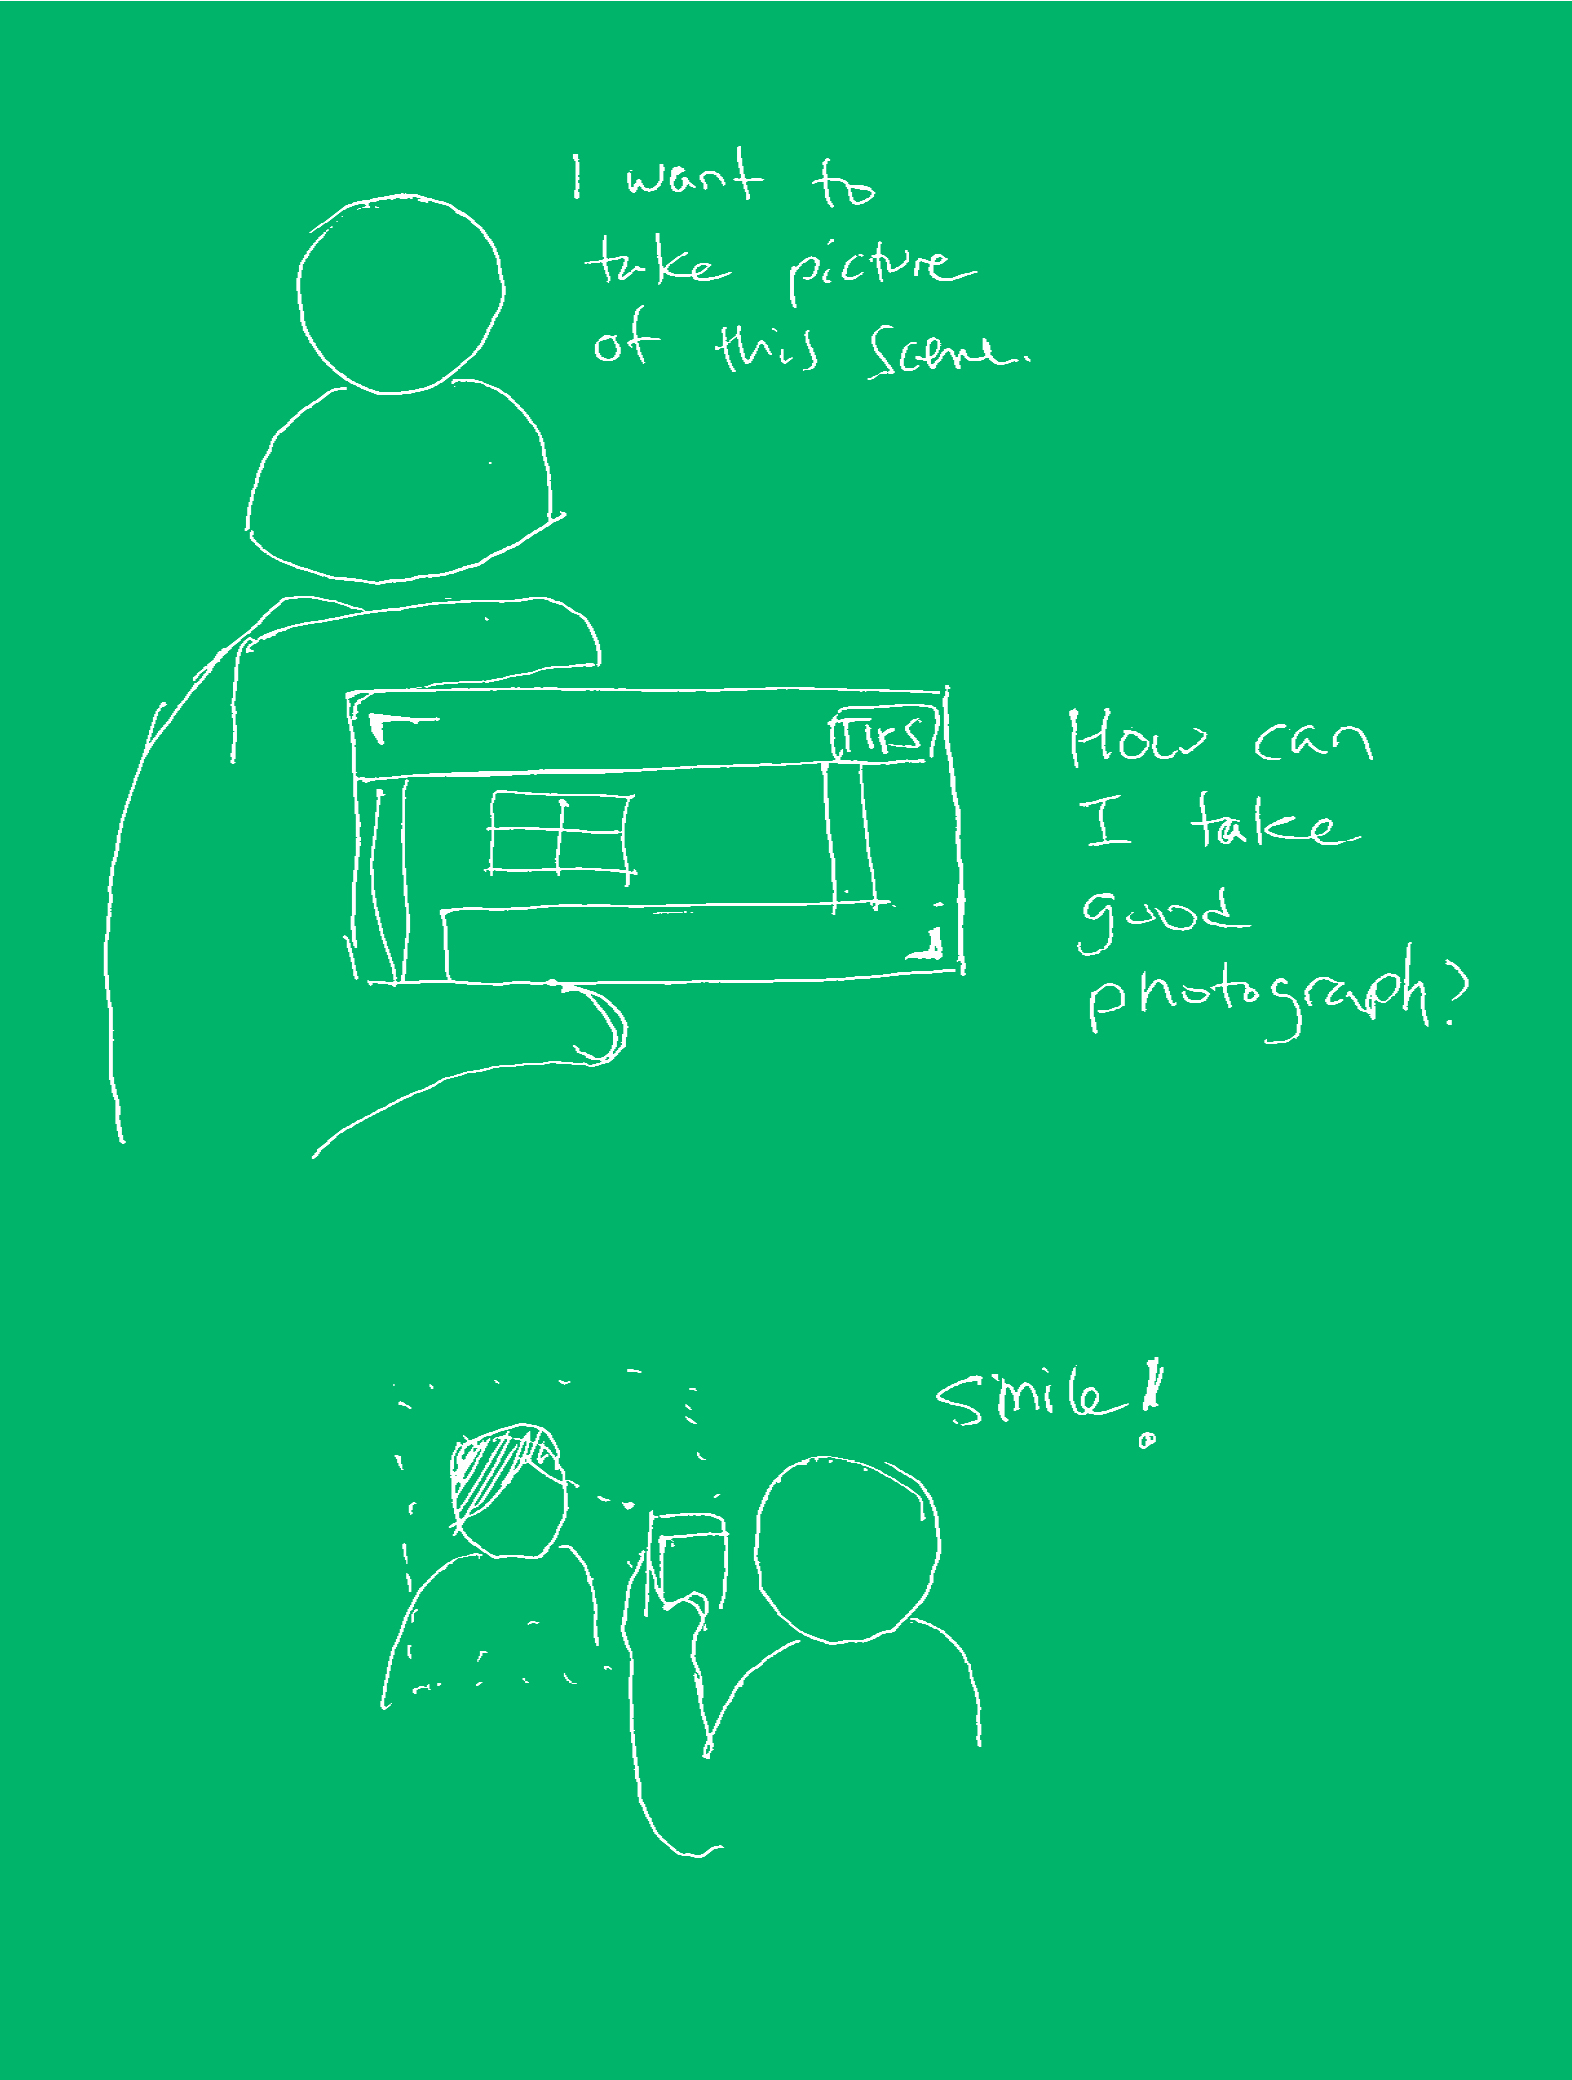 I want to
take picture
of this scene.
TIPS
How can
I take
good
photograph?
Smile!